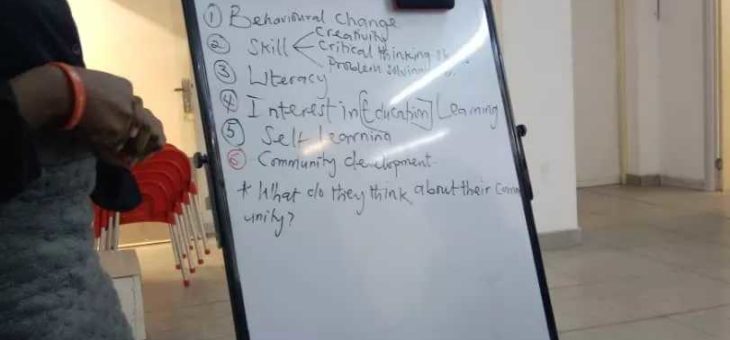 ① Behavioural change
② Skill
Creativity
Critical thinking
Problem solving
③ Literacy
④ Interest in [Education] Learning
⑤ Self Learning
⑥ Community development
* What do they think about their Comm
unity?